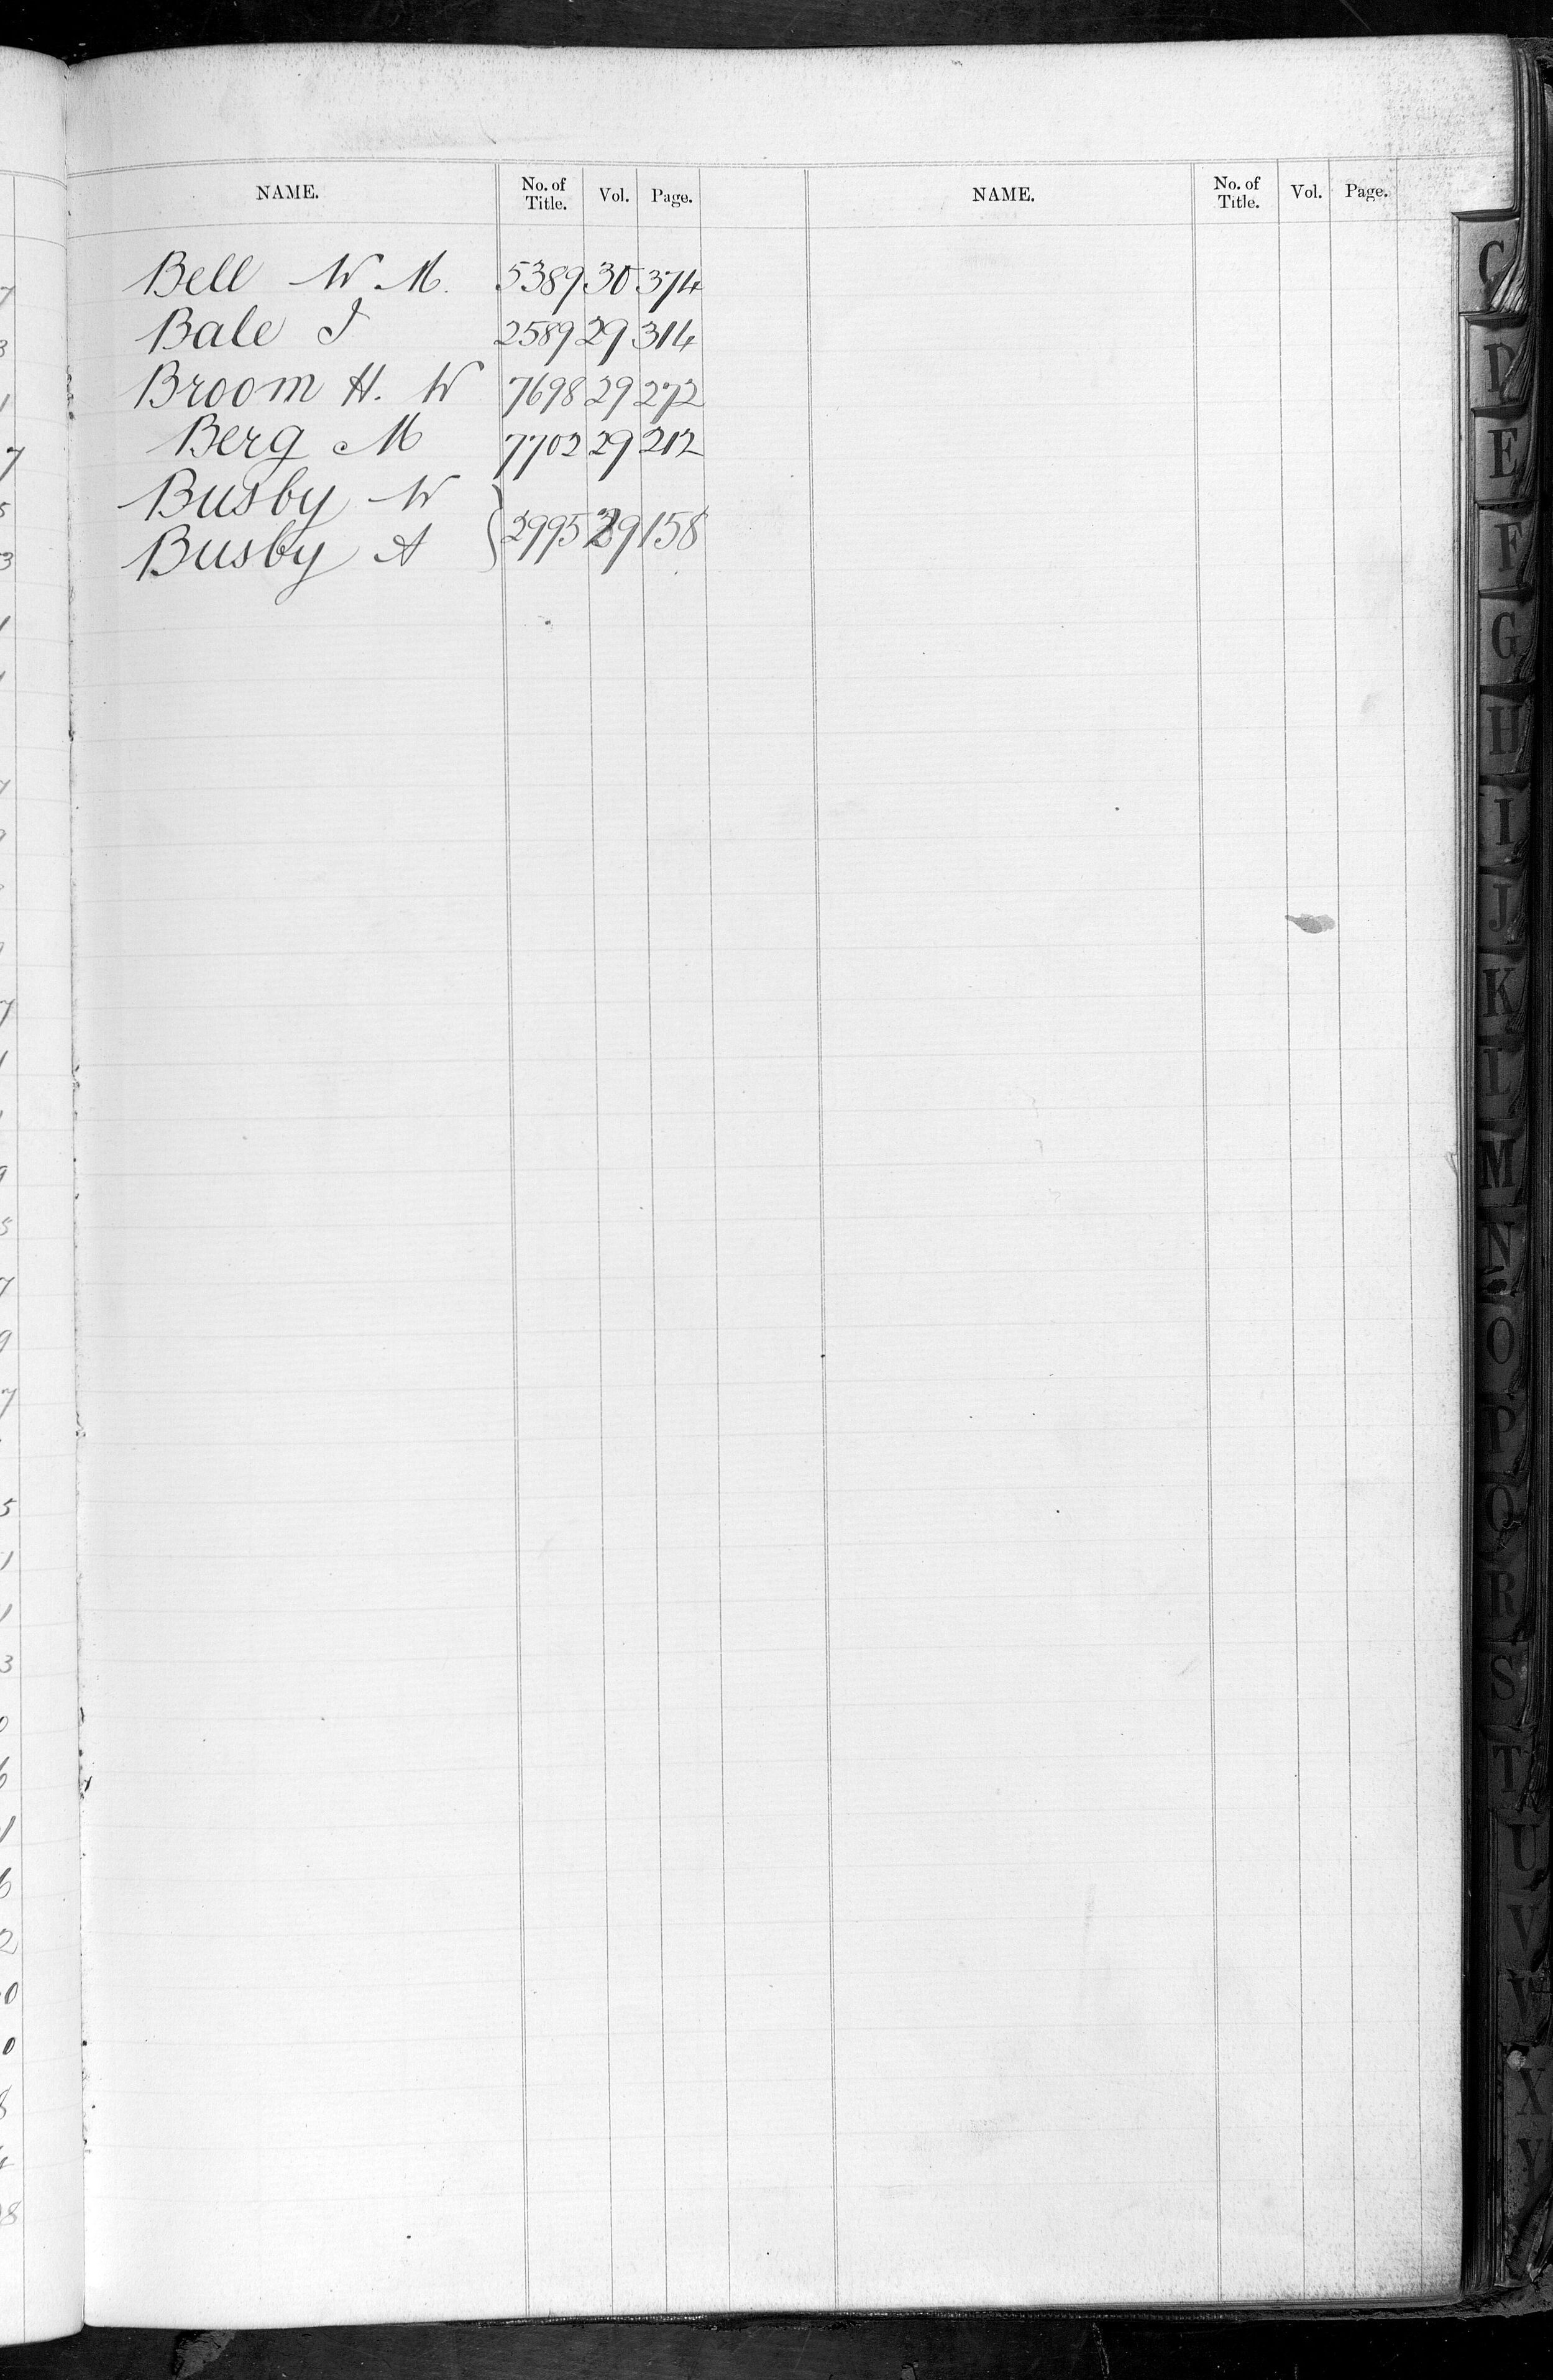 NAME. No. of Title. Vol. Page. NAME. No. of Title. Vol. Page.
Bell W M. 5389 30 374
Bale J 2589 29 314
Broom H. W 7698 29 272
Berg M 7702 29 212
Busby W
Busby A } 2995 29 158
C
D
E
F
G
H
I
J
K
L
M
N
O
P
Q
R
S
T
U
V
W
X
Y